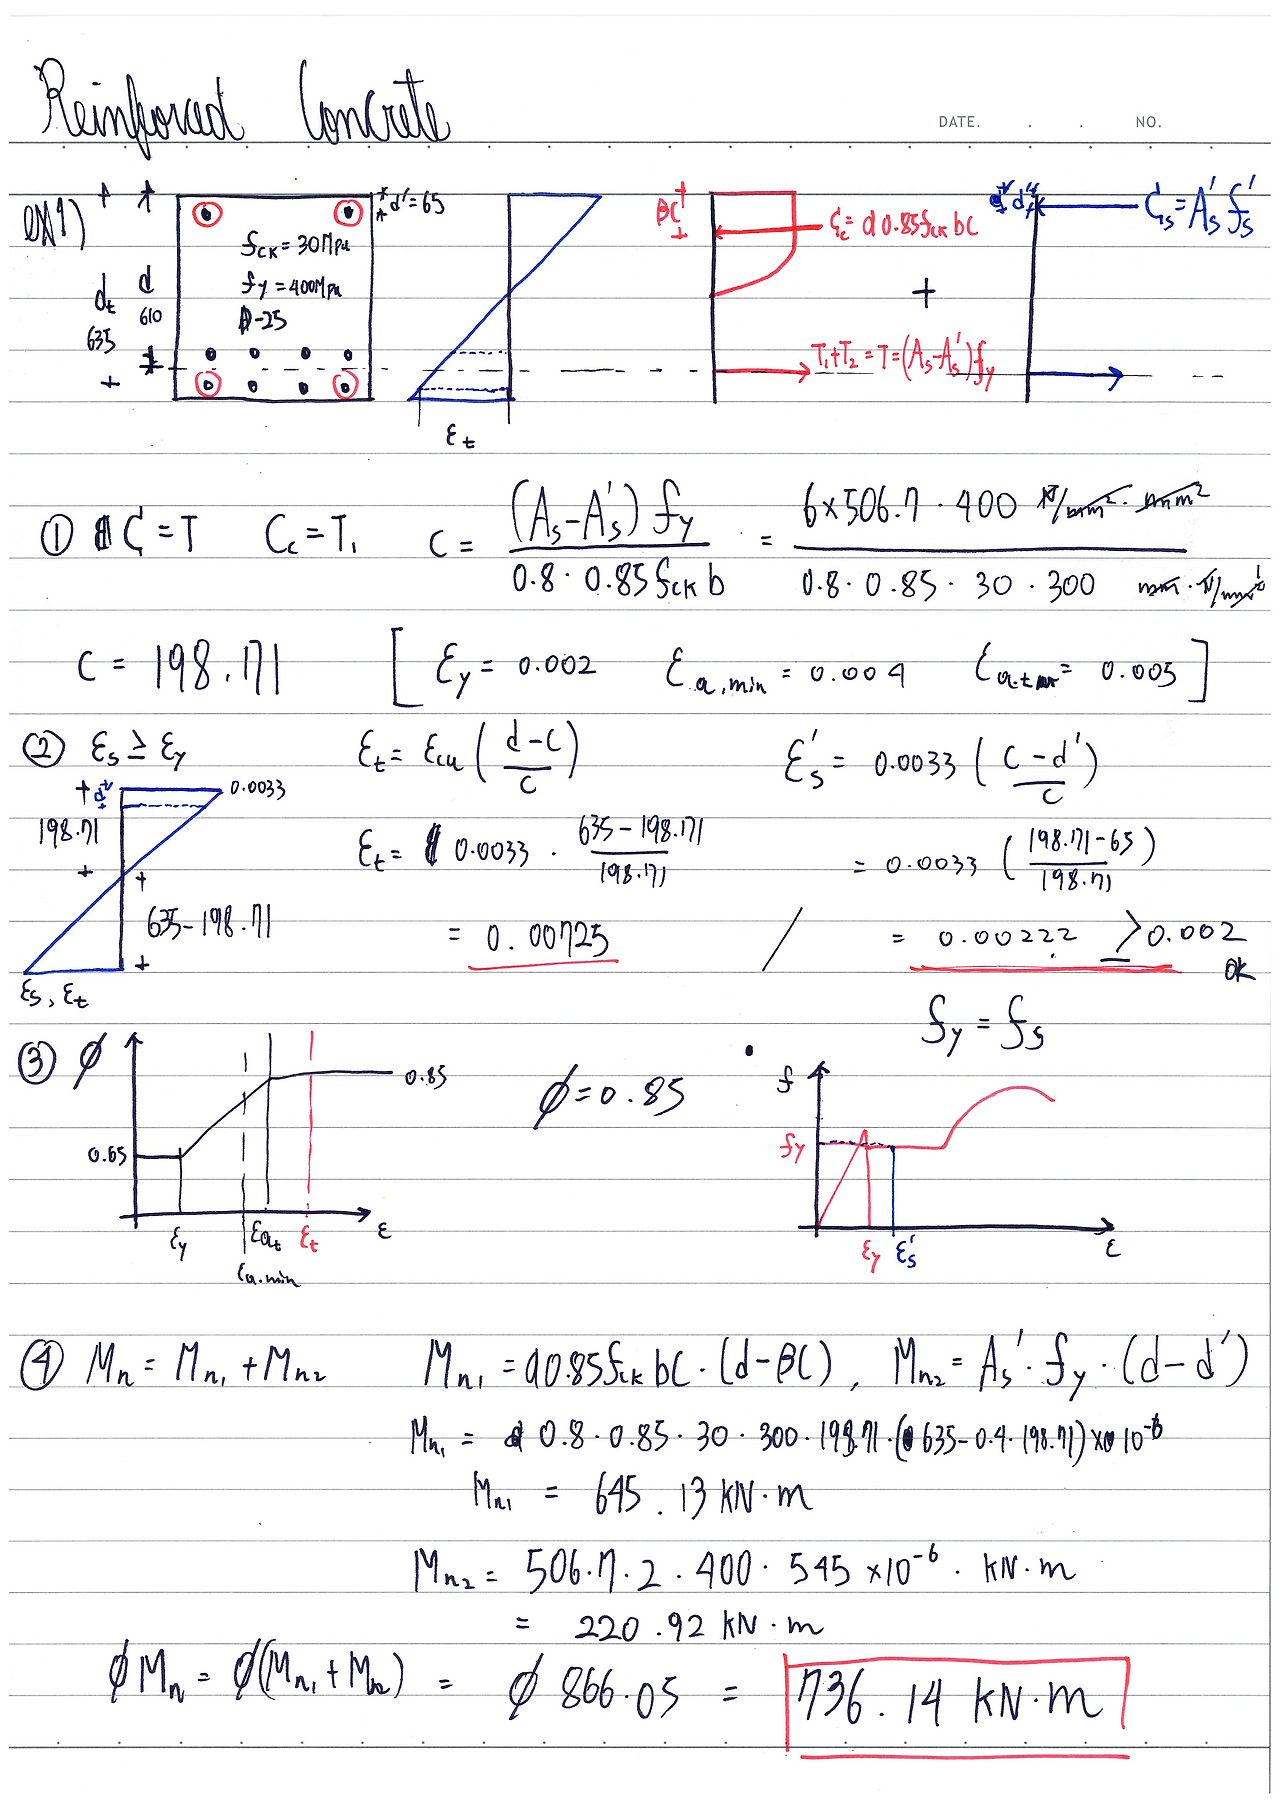 Reinforced Concrete
DATE. . . NO.
ex1)
d' = 65
fck = 30Mpa
fy = 400Mpa
D-25
dt 635
d 610
εt
βC
Cc = α 0.85fck bC
T1+T2 = T = (As-As')fy
+
d'
Cs = As' fs'
① C = T Cc = T1 C = (As-As') fy / 0.8 · 0.85 fck b = 6×506.7 · 400 N/mm² · mm² / 0.8 · 0.85 · 30 · 300 mm · N/mm²
C = 198.71 [ εy = 0.002 εa,min = 0.004 = 0.005 ]
② εs ≥ εy εt = εcu ( d-C / C ) εs' = 0.0033 ( C-d' / C )
d' 0.0033
198.71
εt = 0.0033 · 635-198.71 / 198.71 = 0.0033 ( 198.71-65 / 198.71 )
635-198.71
= 0.00725 / = 0.00222 ≥ 0.002 ok
εs, εt
fy = fs
③ ϕ 0.85 0.65 ϕ = 0.85
εy εat εt ε
εa.min
f fy εy εs' ε
④ Mn = Mn1 + Mn2 Mn1 = α0.85fck bC · (d-βC), Mn2 = As' · fy · (d-d')
Mn1 = 0.8 · 0.85 · 30 · 300 · 198.71 · (635-0.4 · 198.71) × 10⁻⁶
Mn1 = 645.13 kN·m
Mn2 = 506.7 · 2 · 400 · 545 ×10⁻⁶ · kN·m
= 220.92 kN·m
ϕMn = ϕ(Mn1 + Mn2) = ϕ 866.05 = 736.14 kN·m